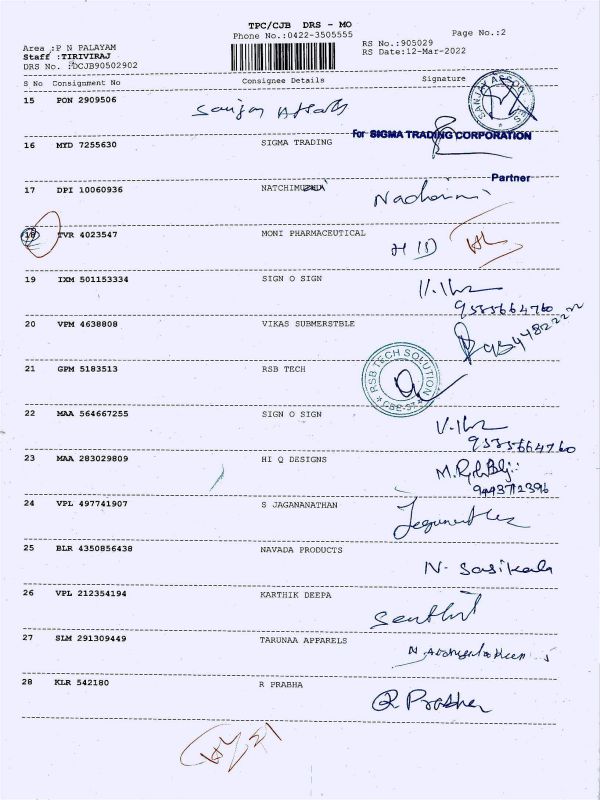 TPC/CJB DRS - MO
Phone No.:0422-3505555
Page No.:2
Area :P N PALAYAM
RS No.:905029
Staff :TIRIVIRAJ
RS Date:12-Mar-2022
DRS No. :DCJB90502902
S No Consignment No Consignee Details Signature
15 PON 2909506
SANJAY ASSOCIATES
for SIGMA TRADING CORPORATION
16 MYD 7255630 SIGMA TRADING
Partner
17 DPI 10060936
18 TVR 4023547 MONI PHARMACEUTICAL
19 IXM 501153334 SIGN O SIGN
9535664760
20 VPM 4638808 VIKAS SUBMERSTBLE
21 GPM 5183513 RSB TECH
RSB TECH SOLUTION
22 MAA 564667255 SIGN O SIGN
9535664760
23 MAA 283029809 HI Q DESIGNS
9443712396
24 VPL 497741907 S JAGANANATHAN
25 BLR 4350856438 NAVADA PRODUCTS
N. Sasikala
26 VPL 212354194 KARTHIK DEEPA
Senthil
27 SLM 291309449 TARUNAA APPARELS
28 KLR 542180 R PRABHA
R Prabha